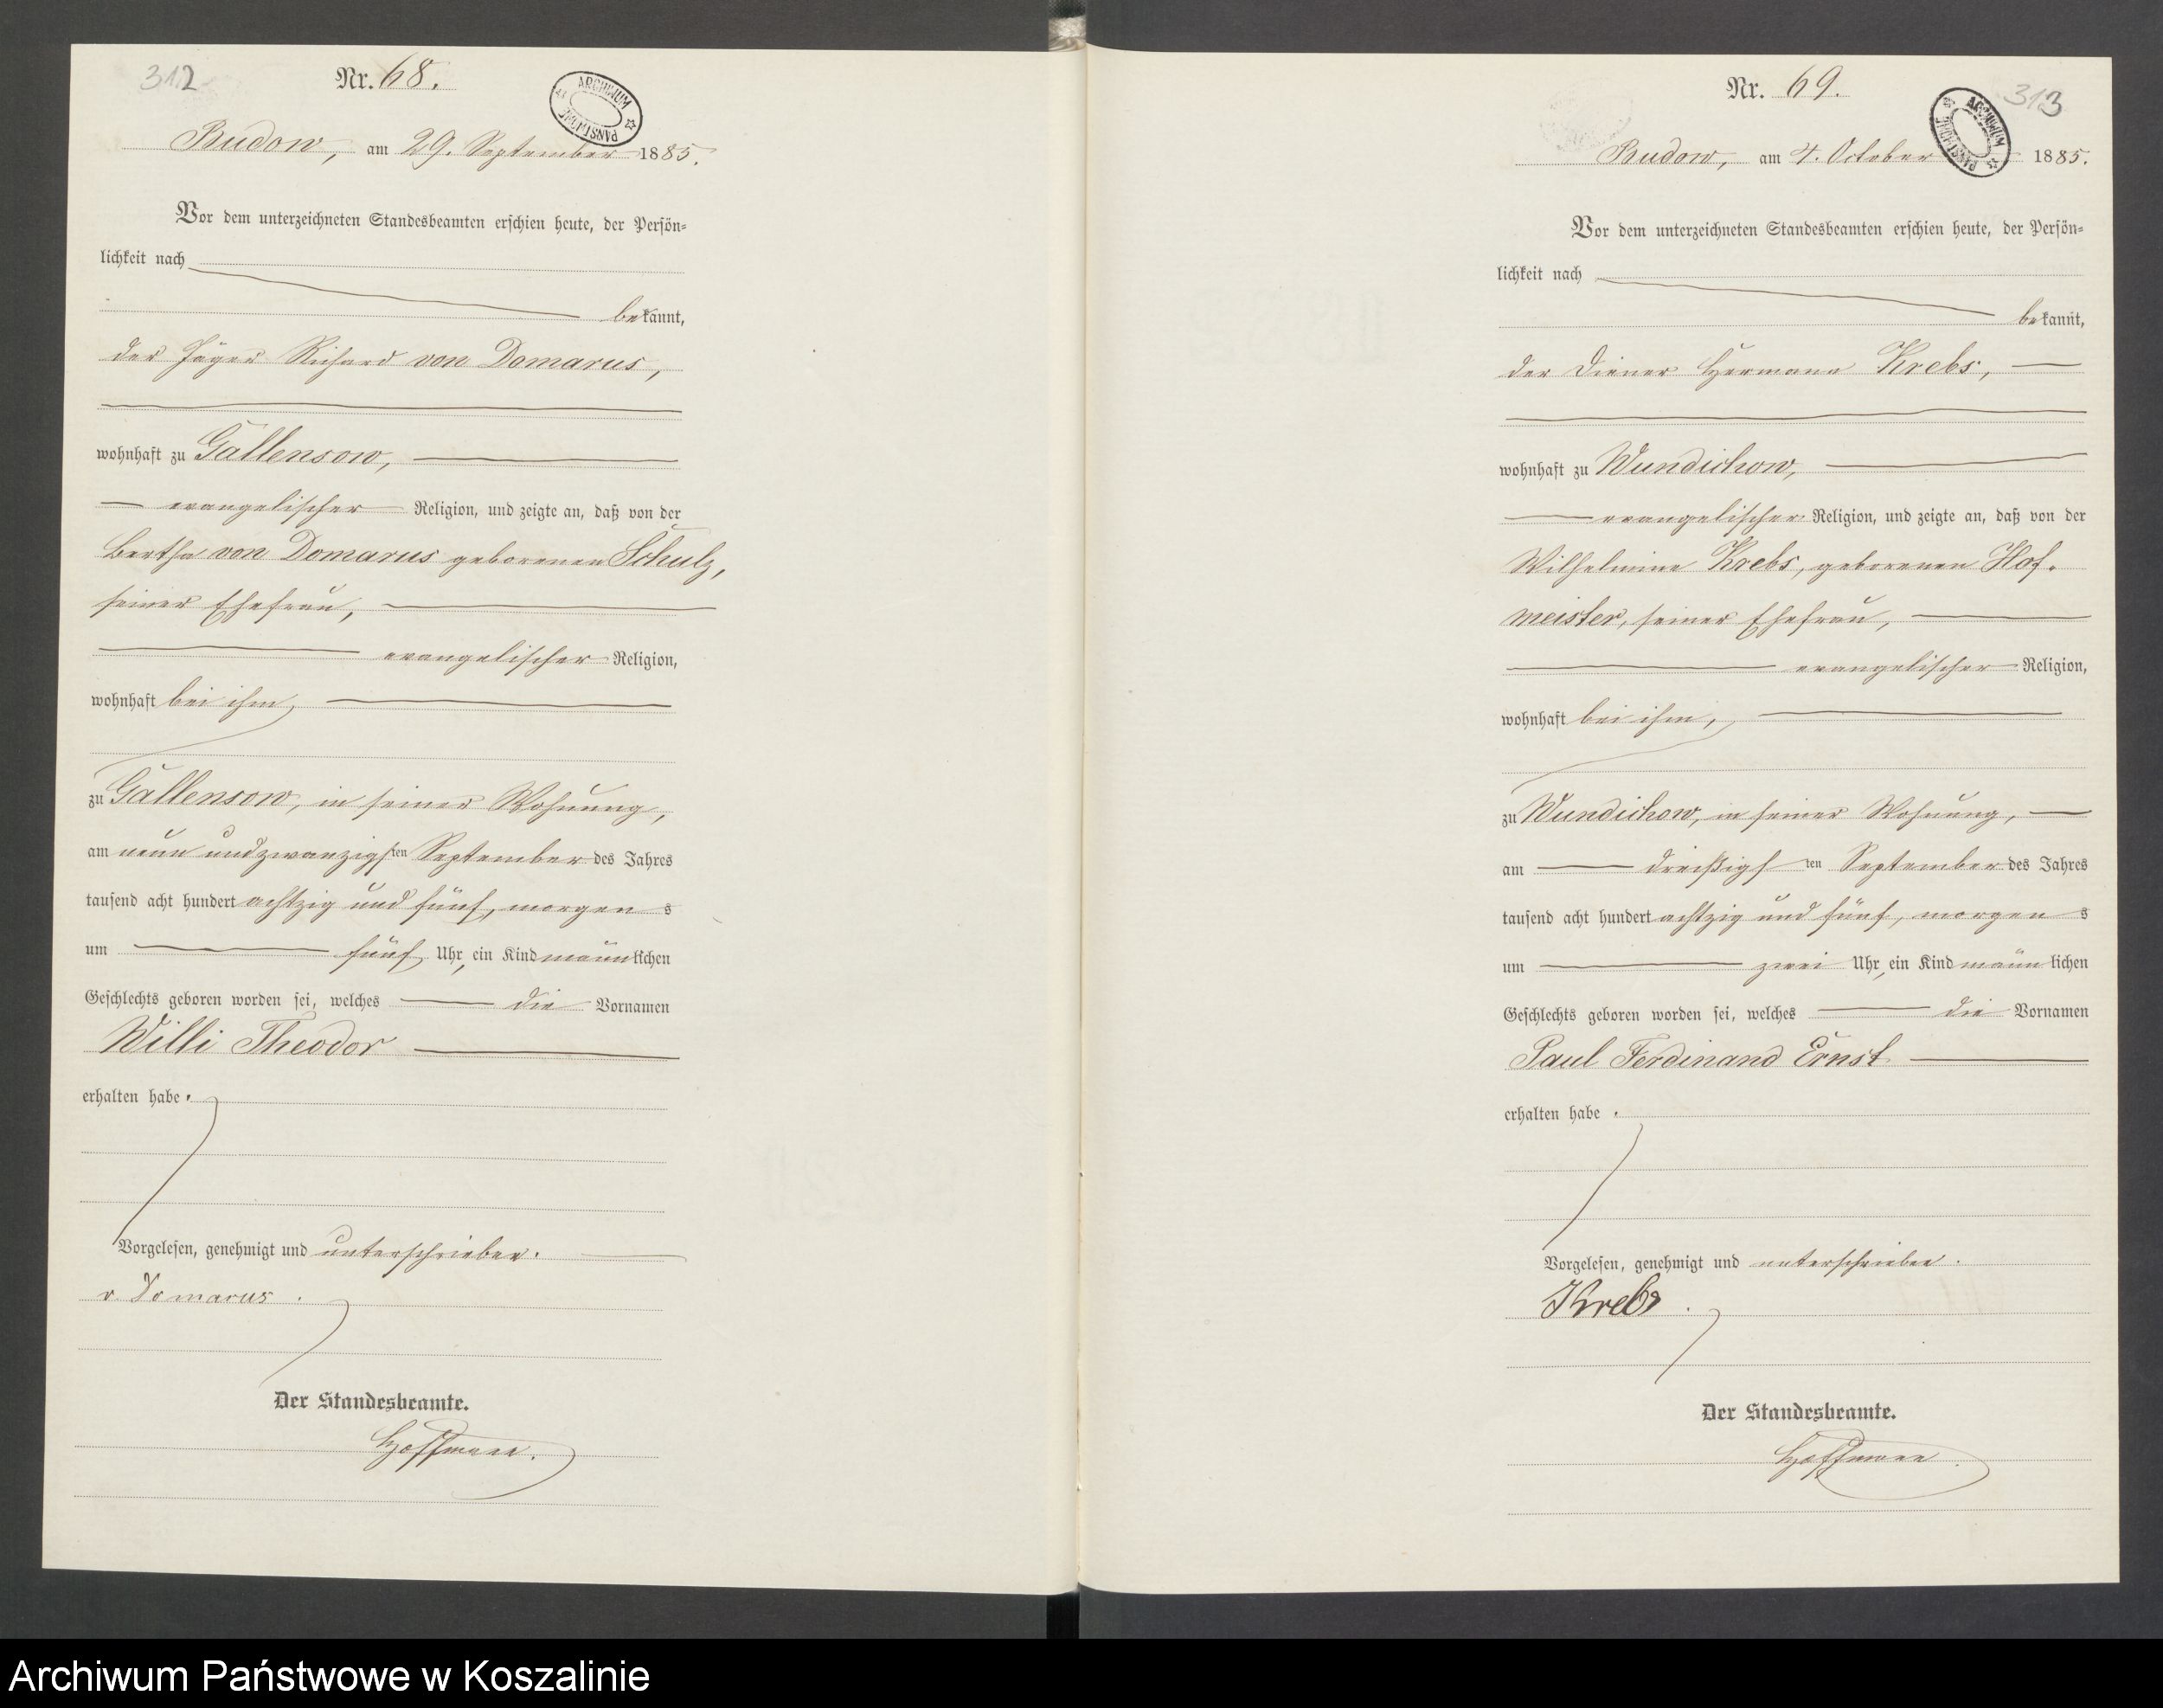 312
Nr. 68.
ARCHIWUM PAŃSTWOWE
Budow, am 29. September 1885.
Vor dem unterzeichneten Standesbeamten erschien heute, der Persön-
lichkeit nach
bekannt,
der Jäger Richard von Domarus,
wohnhaft zu Gallensow,
evangelischer Religion, und zeigte an, daß von der
Bertha von Domarus geborenen Schulz,
seiner Ehefrau,
evangelischer Religion,
wohnhaft bei ihm,
zu Gallensow, in seiner Wohnung,
am neun und zwanzigsten September des Jahres
tausend acht hundert achtzig und fünf, morgens
um fünf Uhr, ein Kind männlichen
Geschlechts geboren worden sei, welches die Vornamen
Willi Theodor
erhalten habe.
Vorgelesen, genehmigt und unterschrieben.
v Domarus.
Der Standesbeamte.
Hoffmann.
Nr. 69.
313
ARCHIWUM PAŃSTWOWE
Budow, am 4. October 1885.
Vor dem unterzeichneten Standesbeamten erschien heute, der Persön-
lichkeit nach
bekannt,
der Diener Hermann Krebs,
wohnhaft zu Wundichow,
evangelischer Religion, und zeigte an, daß von der
Wilhelmine Krebs, geborenen Hof-
meister, seiner Ehefrau,
evangelischer Religion,
wohnhaft bei ihm,
zu Wundichow, in seiner Wohnung,
am dreißigsten September des Jahres
tausend acht hundert achtzig und fünf, morgens
um zwei Uhr, ein Kind männlichen
Geschlechts geboren worden sei, welches die Vornamen
Paul Ferdinand Ernst
erhalten habe.
Vorgelesen, genehmigt und unterschrieben.
Krebs.
Der Standesbeamte.
Hoffmann.
Archiwum Państwowe w Koszalinie